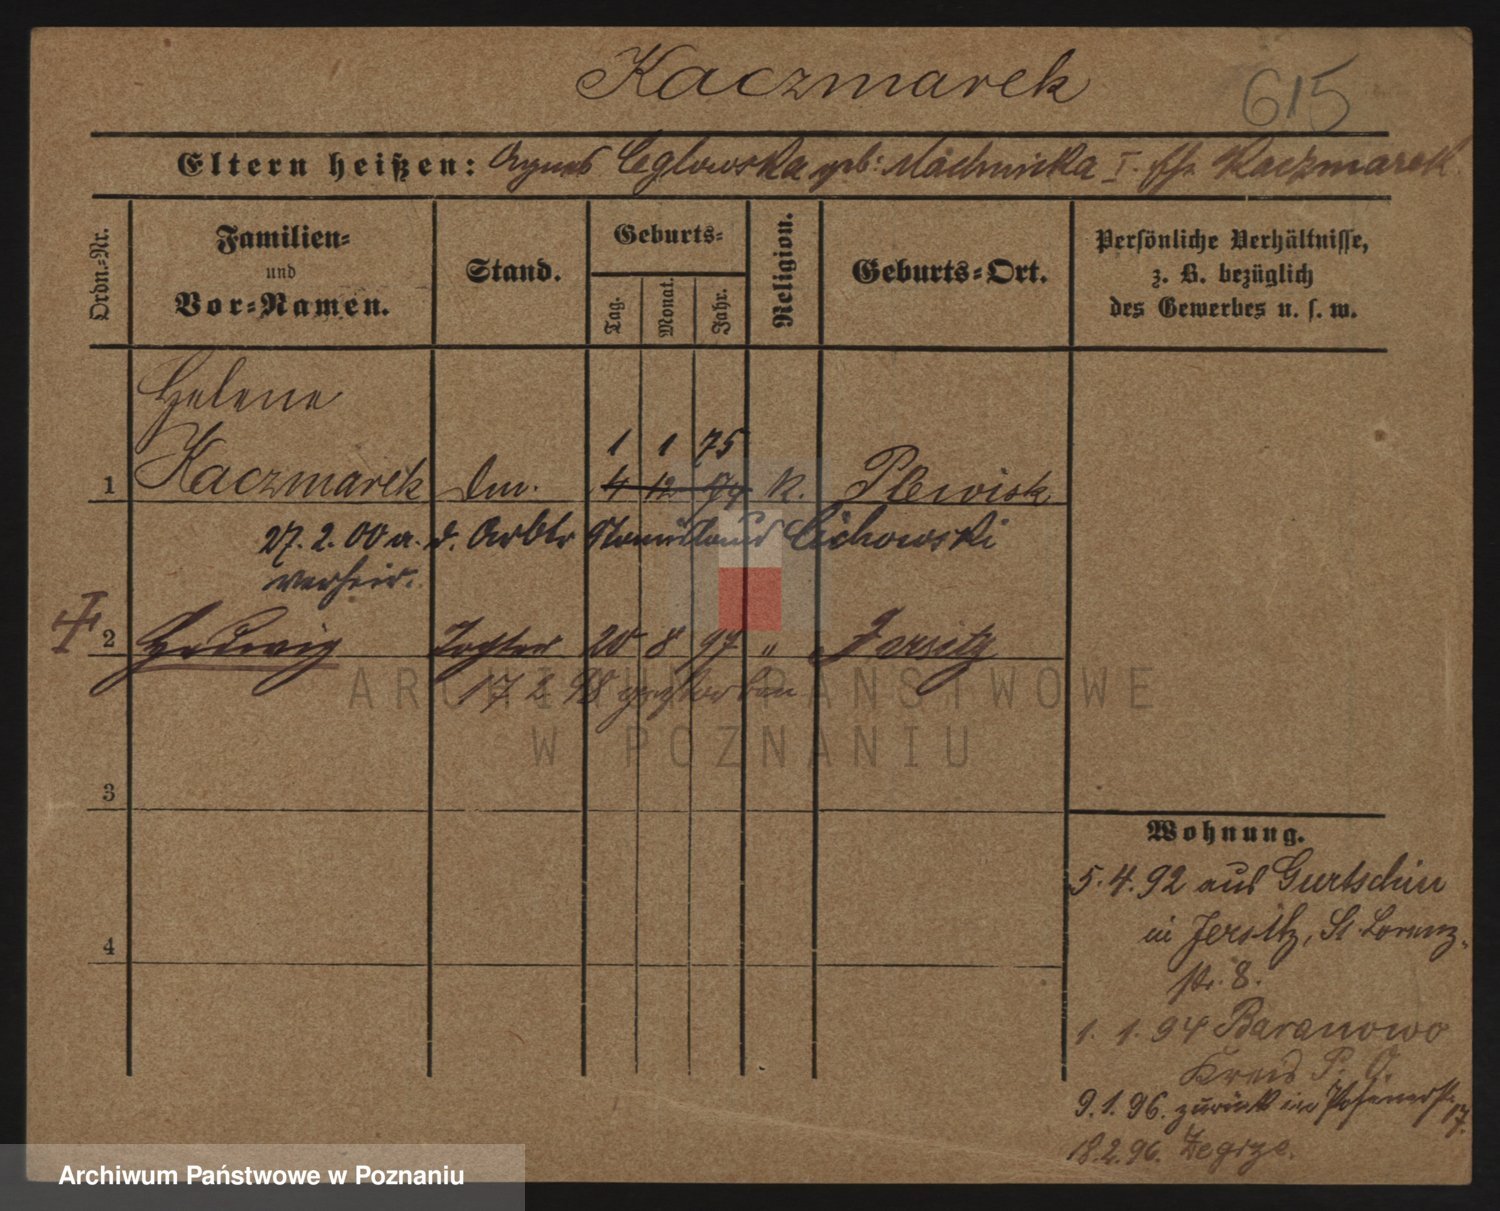 Kaczmarek 615
Eltern heißen: Agnes Ceglowska geb: Machnicka I. Ehe Kaczmarek
Ordn.=Nr.
Familien=
und
Vor=Namen.
Stand.
Geburts=
Tag. Monat. Jahr.
Religion.
Geburts=Ort.
Persönliche Verhältnisse,
z. B. bezüglich
des Gewerbes u. s. w.
Helene
1 1 75
1 Kaczmarek 4 12 74 k. Plewisk
27. 2. 00 a. d. Arbtr Stanislaus Cichowski
verheir.
2 Hedwig Tochter 20 8 97 " Jersitz
17. 2. 98 gestorben
3
4
Wohnung.
5. 4. 92 aus Gurtschin
in Jersitz, St. Lorenz-
str. 8.
1. 1. 94 Baranowo
Kreis P. O.
9. 1. 96. zurück in Posenerstr. 17.
18. 2. 96. Zegrze.
ARCHIWUM PAŃSTWOWE
W POZNANIU
Archiwum Państwowe w Poznaniu